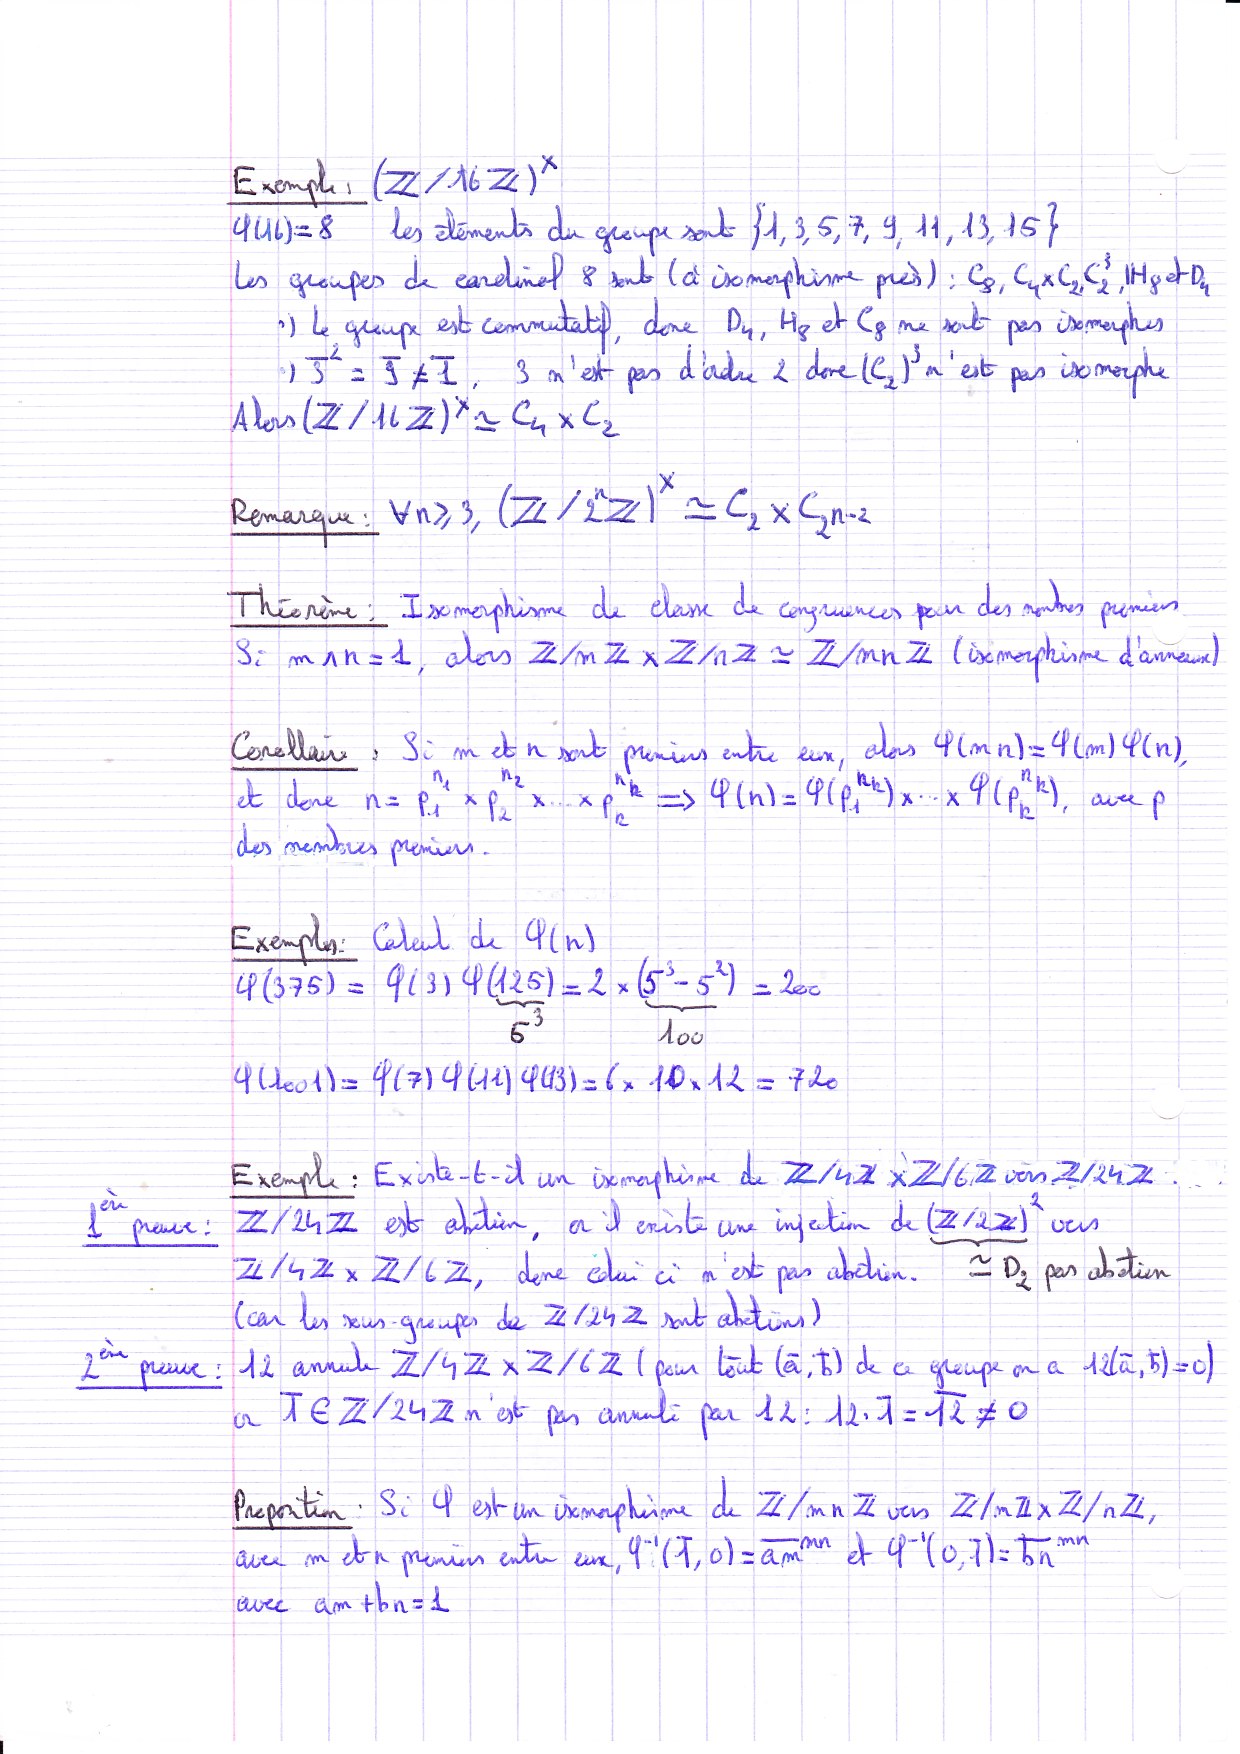 Exemple : (ℤ/16ℤ)^×
φ(16)=8 Les éléments du groupe sont {1, 3, 5, 7, 9, 11, 13, 15}
Les groupes de cardinal 8 sont (à isomorphisme près) : C₈, C₄×C₂, C₂³, ℍ₈ et D₄
·) Le groupe est commutatif, donc D₄, H₈ et C₈ ne sont pas isomorphes
·) 3̄² = 9̄ ≠ 1̄, 3 n'est pas d'ordre 2 donc (C₂)³ n'est pas isomorphe
Alors (ℤ/16ℤ)^× ≃ C₄ × C₂
Remarque : ∀n⩾3, (ℤ/2ⁿℤ)^× ≃ C₂ × C_{2^{n-2}}
Théorème : Isomorphisme de classe de congruences pour des nombres premiers
Si m∧n=1, alors ℤ/mℤ × ℤ/nℤ ≃ ℤ/mnℤ (isomorphisme d'anneaux)
Corollaire : Si m et n sont premiers entre eux, alors φ(mn)=φ(m)φ(n),
et donc n = p₁^{n₁} × p₂^{n₂} × ... × p_k^{n_k} ⟹ φ(n) = φ(p₁^{n_k}) × ... × φ(p_k^{n_k}), avec p
des nombres premiers.
Exemples : Calcul de φ(n)
φ(375) = φ(3) φ(125) = 2 × (5³ - 5²) = 200
5³ 100
φ(1001) = φ(7) φ(11) φ(13) = 6 × 10 × 12 = 720
Exemple : Existe-t-il un isomorphisme de ℤ/4ℤ × ℤ/6ℤ vers ℤ/24ℤ.
1ère preuve : ℤ/24ℤ est abélien, or il existe une injection de (ℤ/2ℤ)² vers
ℤ/4ℤ × ℤ/6ℤ, donc celui ci n'est pas abélien. ≃ D₂ pas abélien
(car les sous-groupes de ℤ/24ℤ sont abéliens)
2ème preuve : 12 annule ℤ/4ℤ × ℤ/6ℤ (pour tout (ā, b̄) de ce groupe on a 12(ā, b̄)=0)
or 1̄ ∈ ℤ/24ℤ n'est pas annulé par 12 : 12·1̄ = \overline{12} ≠ 0
Proposition : Si φ est un isomorphisme de ℤ/mnℤ vers ℤ/mℤ × ℤ/nℤ,
avec m et n premiers entre eux, φ⁻¹(1̄, 0) = \overline{am}^{mn} et φ⁻¹(0, 1̄) = \overline{bn}^{mn}
avec am + bn = 1